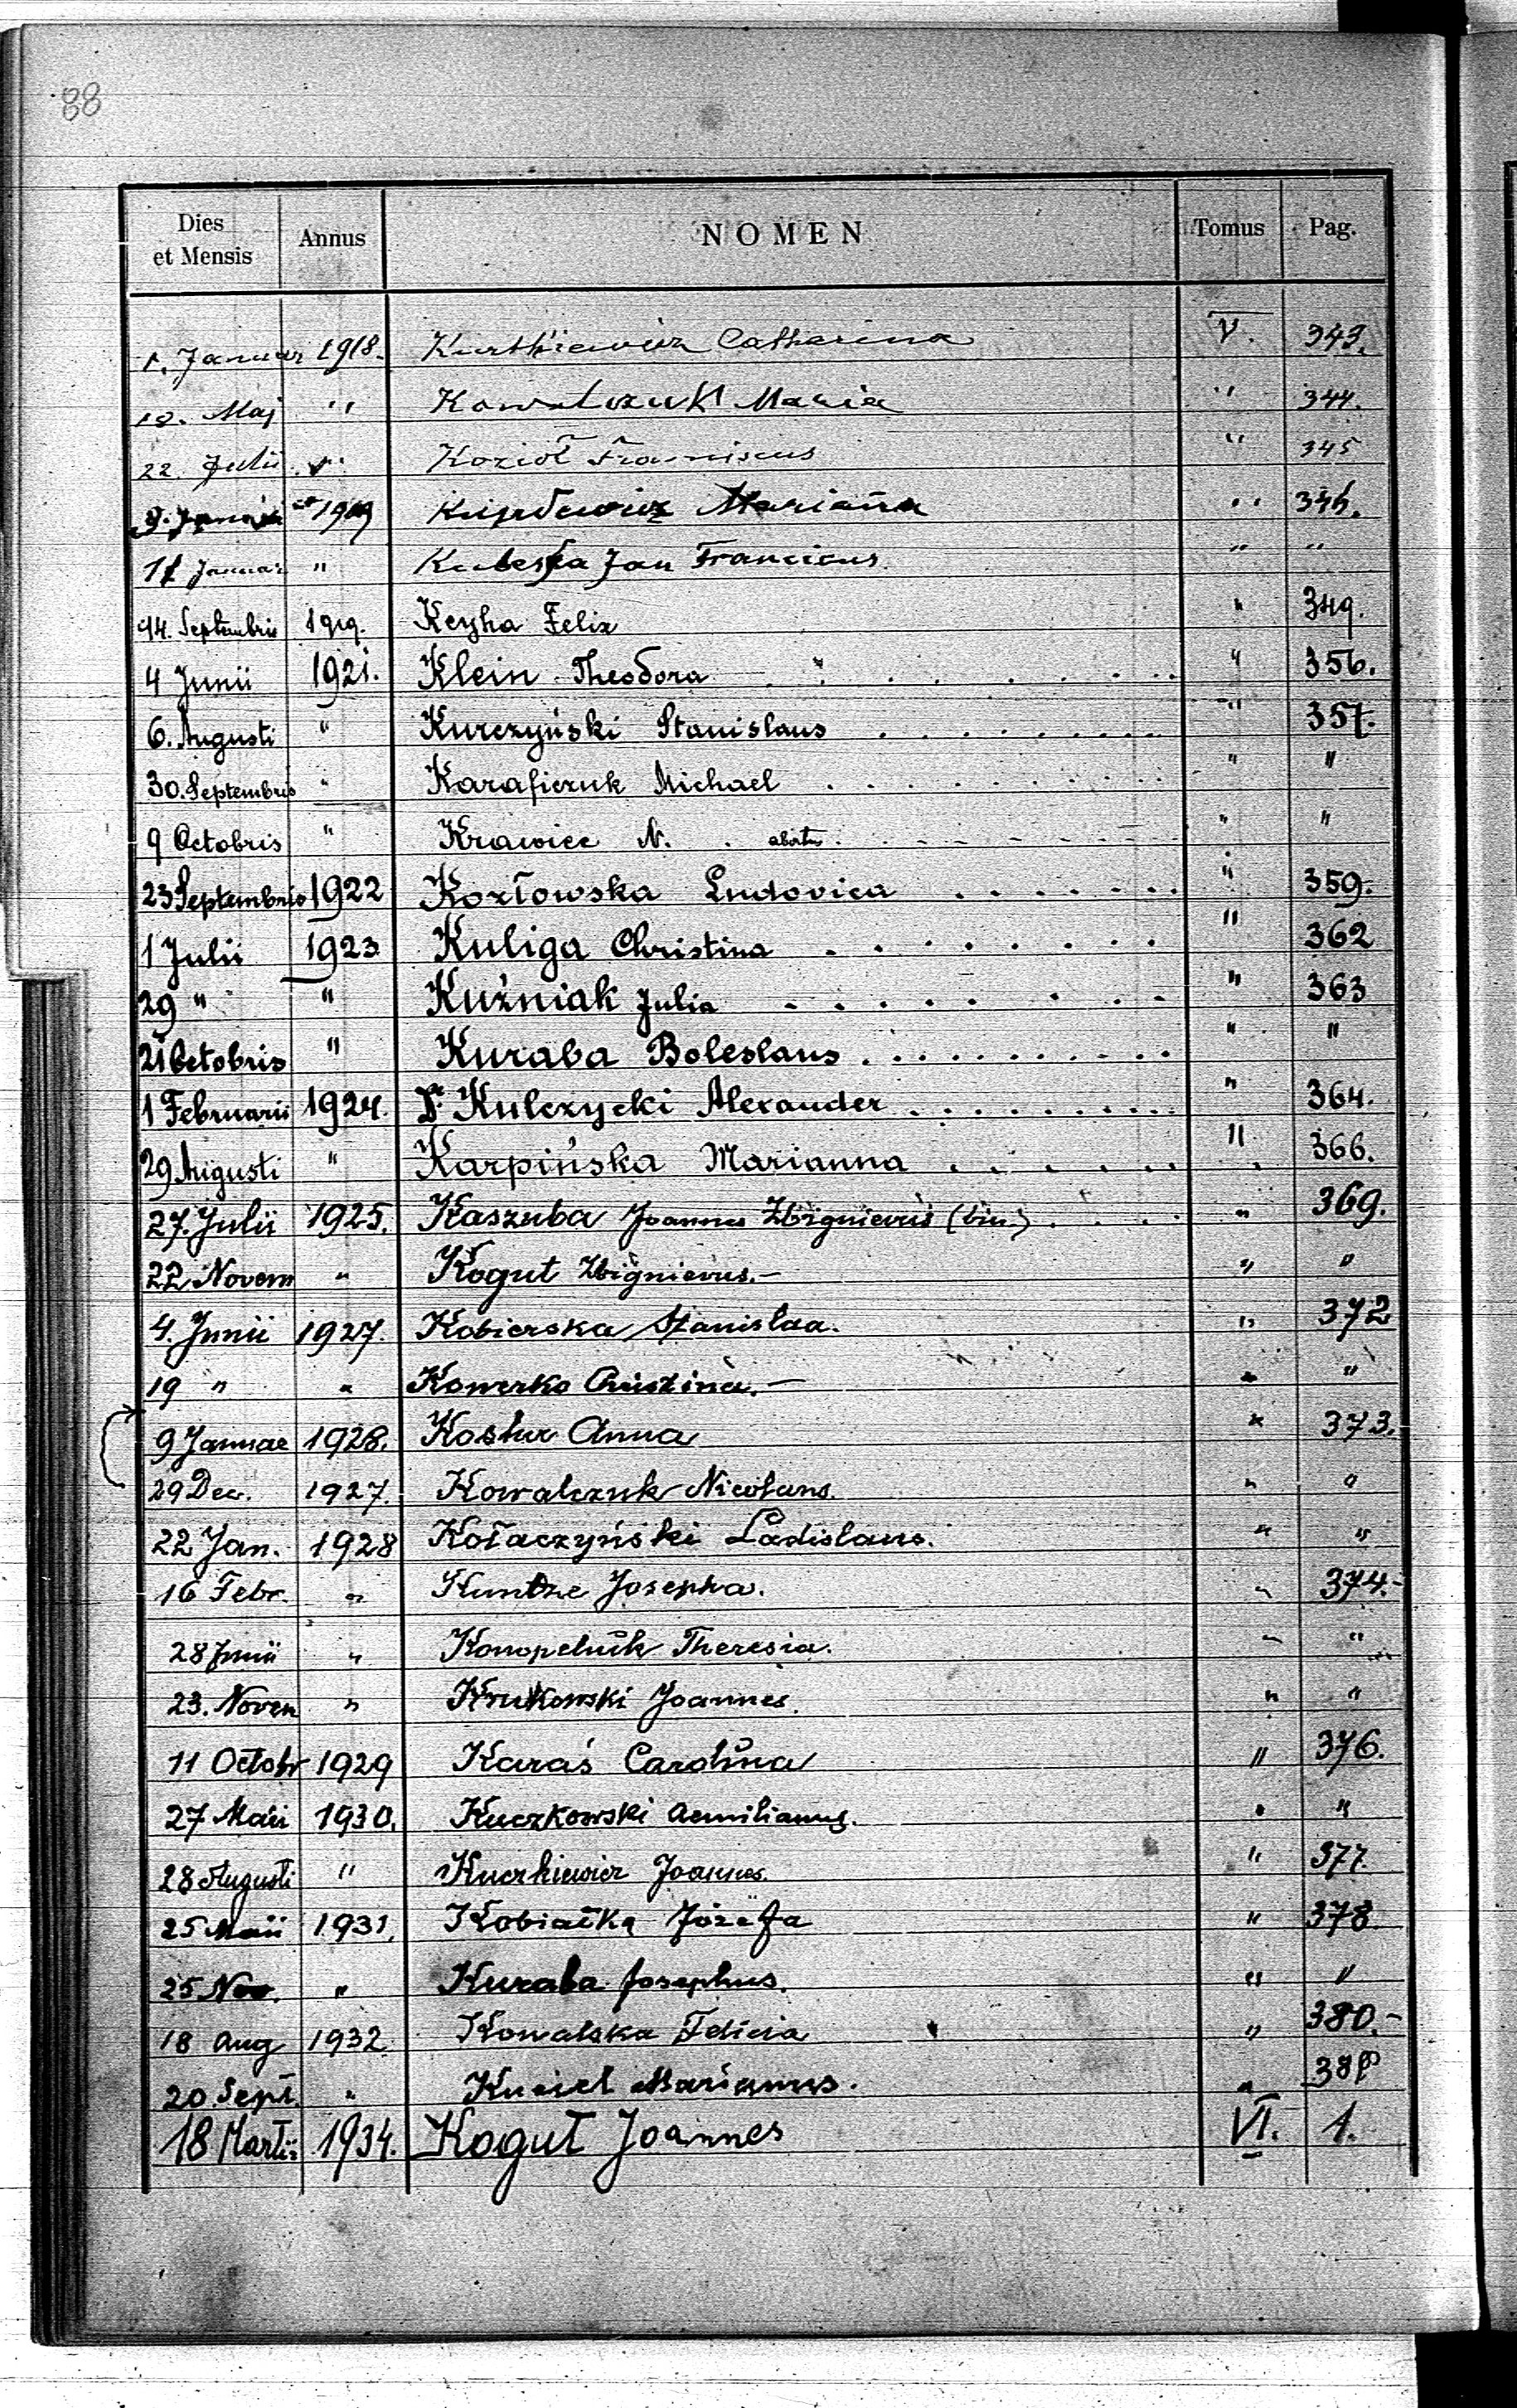 88
Dies et Mensis Annus NOMEN Tomus Pag.
1. Januar 1918. Kurtkiewicz Catharina V. 343.
18. Maj " Kowalczuk Maria " 344.
22. Julii " Kozioł Franciscus " 345
1919 Marianna " 346.
11 Januar " Jan Francicus " "
14. Septembris 1919. Keyha Felix " 349.
4 Junii 1921. Klein Theodora " 356.
6. Augusti " Kurczyński Stanislaus " 357.
30. Septembris " Karaficzuk Michael " "
9 Octobris " Krawiec N. abortus " "
23 Septembris 1922 Kozłowska Ludovica " 359.
1 Julii 1923 Kuliga Christina " 362
29 " " Kuźniak Julia " 363
21 Octobris " Kuraba Boleslaus " "
1 Februarii 1924. Dr Kulczycki Alexander " 364.
29 Augusti " Karpińska Marianna " 366.
27. Julii 1925. Kaszuba Joannes Zbignievus (bin.) " 369.
22 Novem " Kogut Zbignievus.- " "
4. Junii 1927. Kobierska Stanislaa. " 372
19 " " Kowerko Christina.- " "
9 Januar 1928. Kostur Anna " 373.
29 Dec. 1927. Kowalczuk Nicolaus. " "
22 Jan. 1928 Kołaczyński Ladislaus. " "
16 Febr. " Kuntze Josepha. " 374.-
28 Junii " Konopelnik Theresia. " "
23. Novem " Krukowski Joannes. " "
11 Octobr 1929 Karaś Carolina " 376.
27 Maii 1930. Kuczkowski Aemilianus. " "
28 Augusti " Kuczkiewicz Joannes. " 377.
25 Maii 1931. Kobiałka Józefa " 378.
25 Nov. " Kuraba Josephus. " "
18 Aug 1932 Kowalska Felicia " 380.-
20. Sept. " Marianus. "
18 Martii 1934. Kogut Joannes VI. 1.